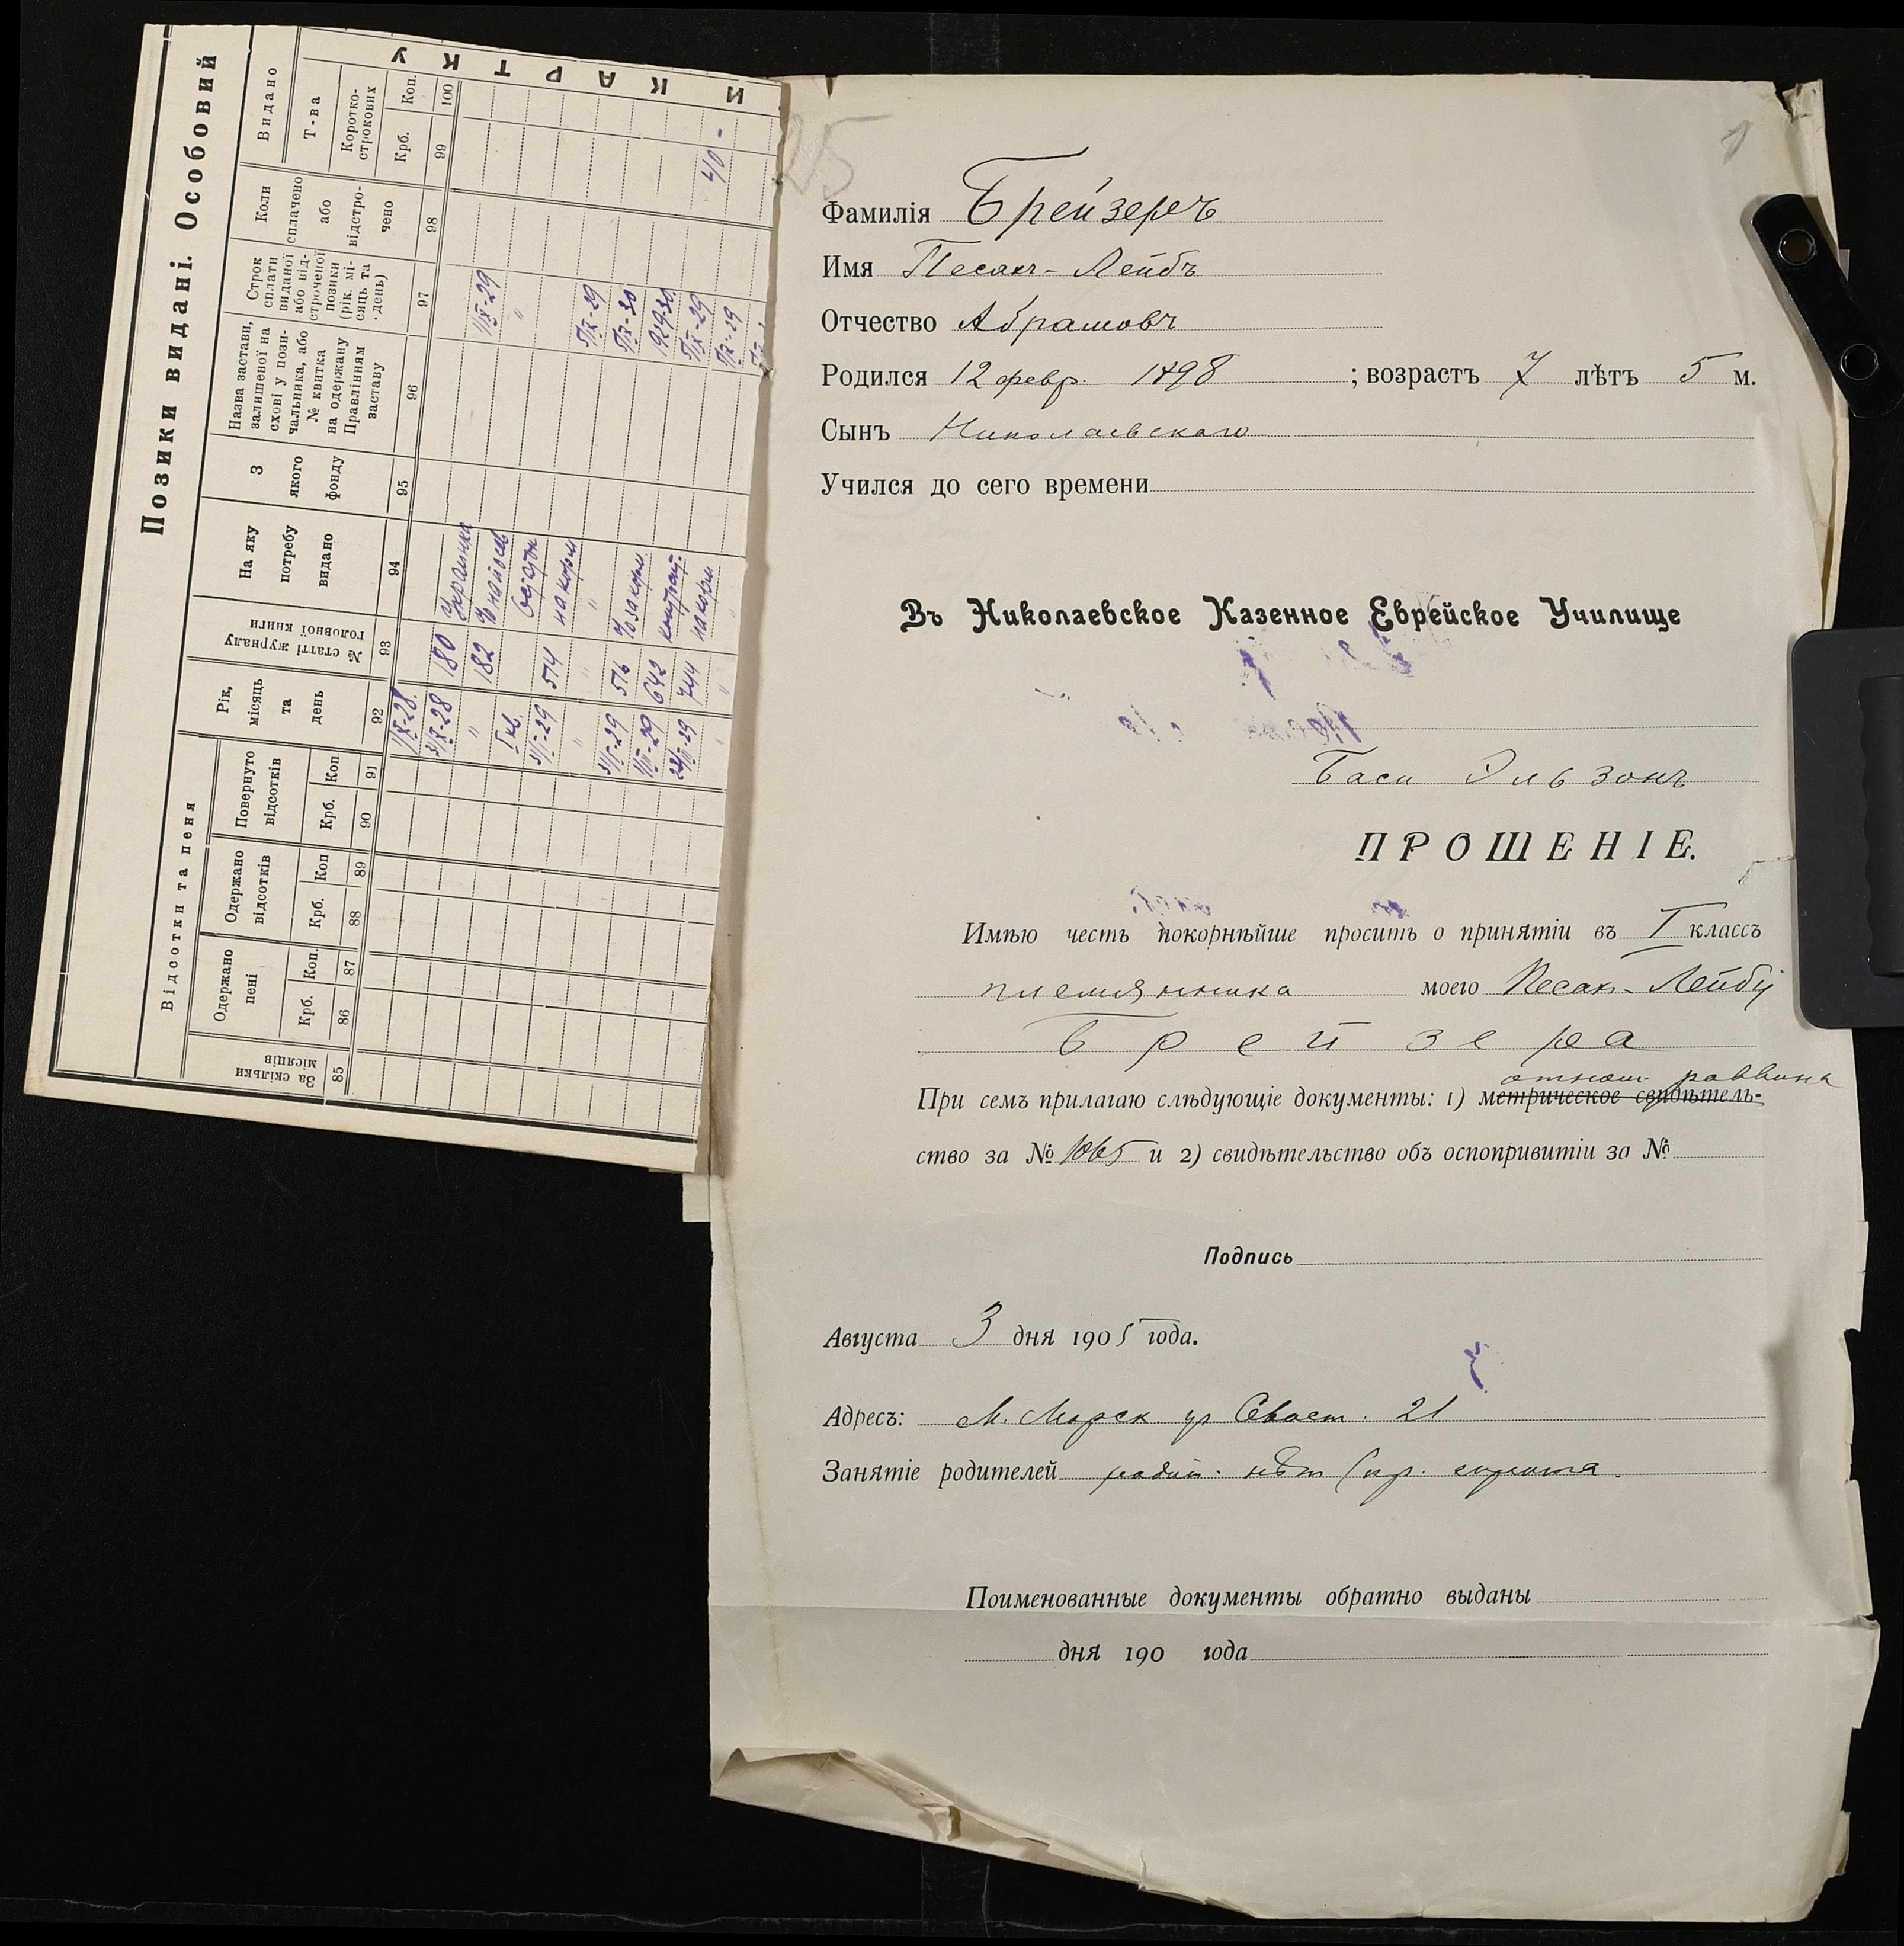 Позики видані. Особовий
И КАРТКУ
Відсотки та пеня
Видано
За скільки місяців
Одержано пені
Одержано відсотків
Повернуто відсотків
Рік, місяць та день
№ статті журналу головної книги
На яку потребу видано
З якого фонду
Назва застави, залишеної на схові у пози-чальника, або № квитка на одержану Правлінням заставу
Строк сплати виданої або від-строченої позики (рік, мі-сяць та день)
Коли сплачено або відстро-чено
Т-ва
Коротко-строкових
Крб. Коп. Крб. Коп Крб. Коп Крб. Коп.
85 86 87 88 89 90 91 92 93 94 95 96 97 98 99 100
1/X-28.
31/X-28 180 1/IX-29
" 182 "
31/I-29 574 на корм 5/IX-29
" " " 5/IX-30
31/I-29 516 929-30.
1/III-29 642 5/IX-29
744 на корм 5/IX-29 40 -
25
1
Фамилія Брейзеръ
Имя Песахъ-Лейбъ
Отчество Абрамовъ
Родился 12 февр. 1898 ; возрастъ 7 лѣтъ 5 м.
Сынъ Николаевскаго
Учился до сего времени
Въ Николаевское Казенное Еврейское Училище
Баси Эльзонъ
ПРОШЕНІЕ.
Имѣю честь покорнѣйше просить о принятіи въ I классъ
племянника моего Песах-Лейбу
Брейзера
отнош. раввина
При семъ прилагаю слѣдующіе документы: 1) метрическое свидѣтель-
ство за № 1065 и 2) свидѣтельство объ оспопривитіи за №
Подпись
Августа 3 дня 1905 года.
Адресъ: М. Морск. ур Сваст. 21
Занятіе родителей родит. нѣт (кр. сирота.
Поименованные документы обратно выданы
дня 190 года